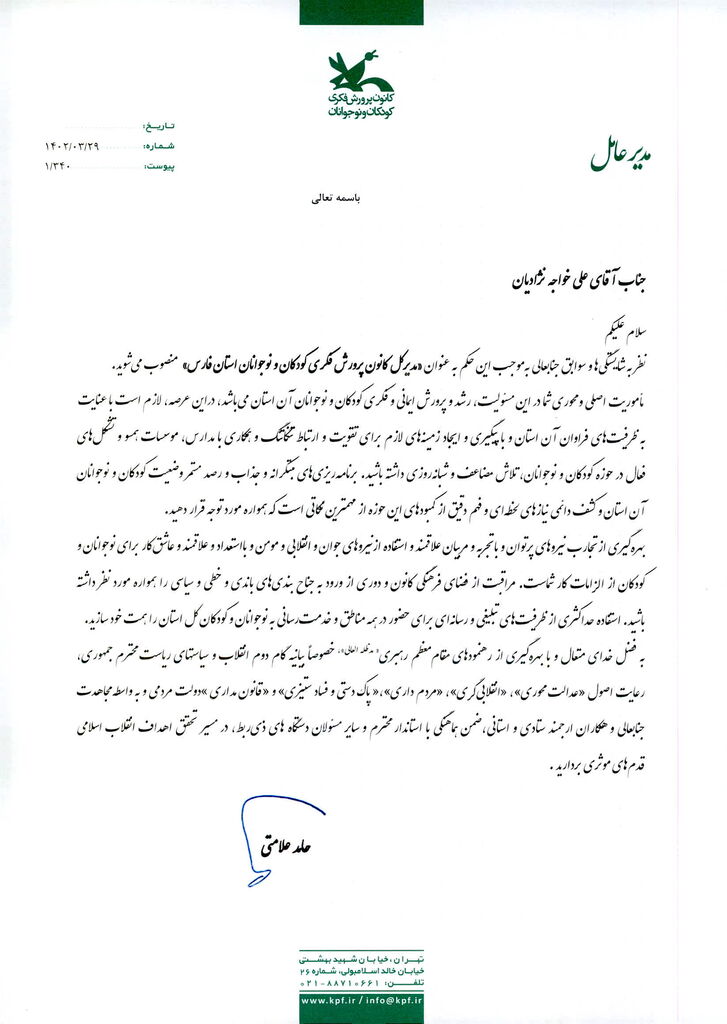 کانون پرورش فکری
کودکان و نوجوانان
تاریخ:
شماره: ۱۴۰۲/۰۳/۲۹
پیوست: ۱/۳۴۰
مدیر عامل
باسمه تعالی
جناب آقای علی خواجه نژادیان
سلام علیکم
نظر به شایستگی‌ها و سوابق جنابعالی به موجب این حکم به عنوان «مدیرکل کانون پرورش فکری کودکان و نوجوانان استان فارس» منصوب می‌شوید.
مأموریت اصلی و محوری شما در این مسئولیت، رشد و پرورش ایمانی و فکری کودکان و نوجوانان آن استان می‌باشد، در این عرصه، لازم است با عنایت
به ظرفیت‌های فراوان آن استان و با پیگیری و ایجاد زمینه‌های لازم برای تقویت و ارتباط تنگاتنگ و همکاری با مدارس، موسسات همسو و تشکل‌های
فعال در حوزه کودکان و نوجوانان، تلاش مضاعف و شبانه‌روزی داشته باشید. برنامه‌ریزی‌های مبتکرانه و جذاب و رصد مستمر وضعیت کودکان و نوجوانان
آن استان و کشف دائمی نیازهای لحظه‌ای و فهم دقیق از کمبودهای این حوزه از مهمترین نکاتی است که همواره مورد توجه قرار دهید.
بهره‌گیری از تجارب نیروهای پرتوان و باتجربه و مربیان علاقمند و استفاده از نیروهای جوان و انقلابی و مومن و بااستعداد و علاقمند و عاشق کار برای نوجوانان و
کودکان از الزامات کار شماست. مراقبت از فضای فرهنگی کانون و دوری از ورود به جناح بندی‌های باندی و خطی و سیاسی را همواره مورد نظر داشته
باشید. استفاده حداکثری از ظرفیت‌های تبلیغی و رسانه‌ای برای حضور در همه مناطق و خدمت‌رسانی به نوجوانان و کودکان کل استان را همت خود سازید.
به فضل خدای متعال و با بهره‌گیری از رهنمودهای مقام معظم رهبری«مدظله العالی»، خصوصاً بیانیه گام دوم انقلاب و سیاستهای ریاست محترم جمهوری،
رعایت اصول «عدالت محوری»، «انقلابی‌گری»، «مردم داری»،«پاک دستی و فساد ستیزی» و «قانون مداری »دولت مردمی و به واسطه مجاهدت
جنابعالی و همکاران ارجمند ستادی و استانی،ضمن هماهنگی با استاندار محترم و سایر مسئولان دستگاه های ذی‌ربط، در مسیر تحقق اهداف انقلاب اسلامی
قدم‌های موثری بردارید .
حامد علامتی
تهران، خیابان شهید بهشتی
خیابان خالد اسلامبولی، شماره ۲۶
تلفن: ۸۸۷۱۰۶۶۱-۰۲۱
www.kpf.ir / info@kpf.ir